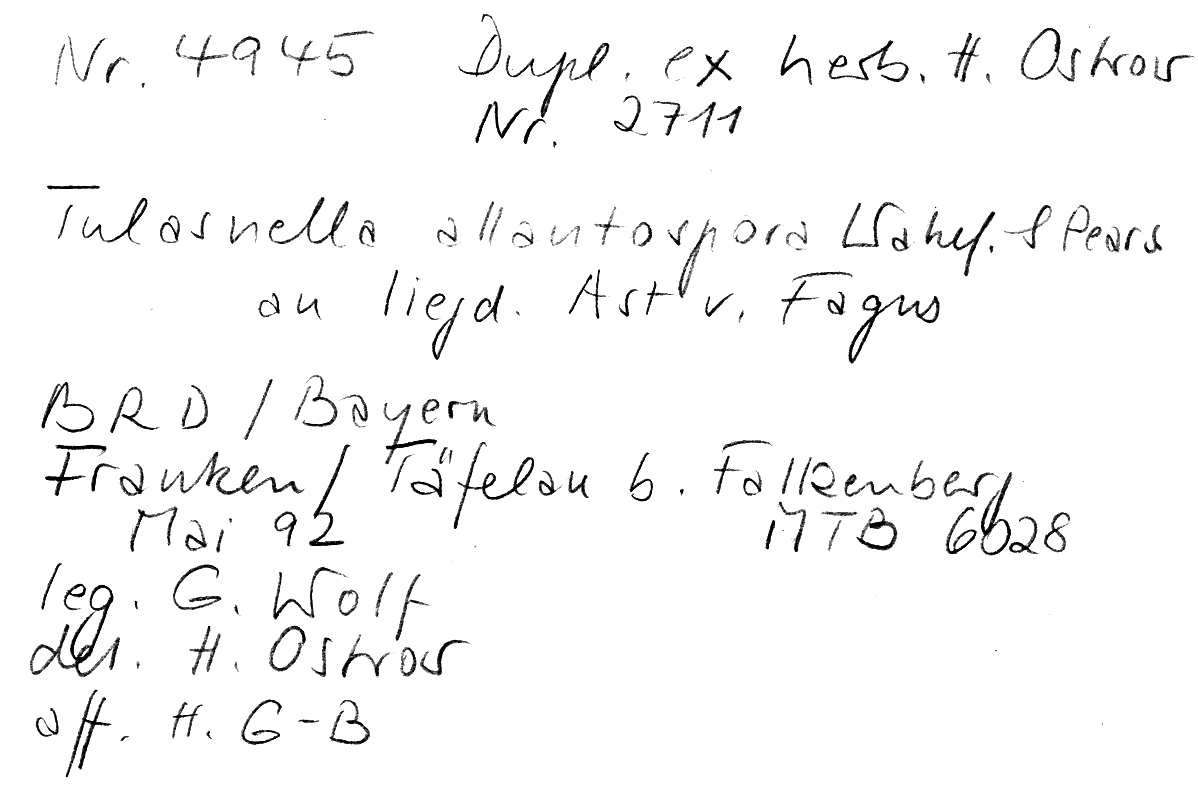 Nr. 4945 Dupl. ex herb. H. Ostrow
Nr. 2711
Tulasnella allantospora Wakef. & Pears
an liegd. Ast v. Fagus
BRD / Bayern
Franken / Täfelau b. Falkenberg
Mai 92 MTB 6028
leg. G. Wolf
det. H. Ostrow
aff. H. G-B